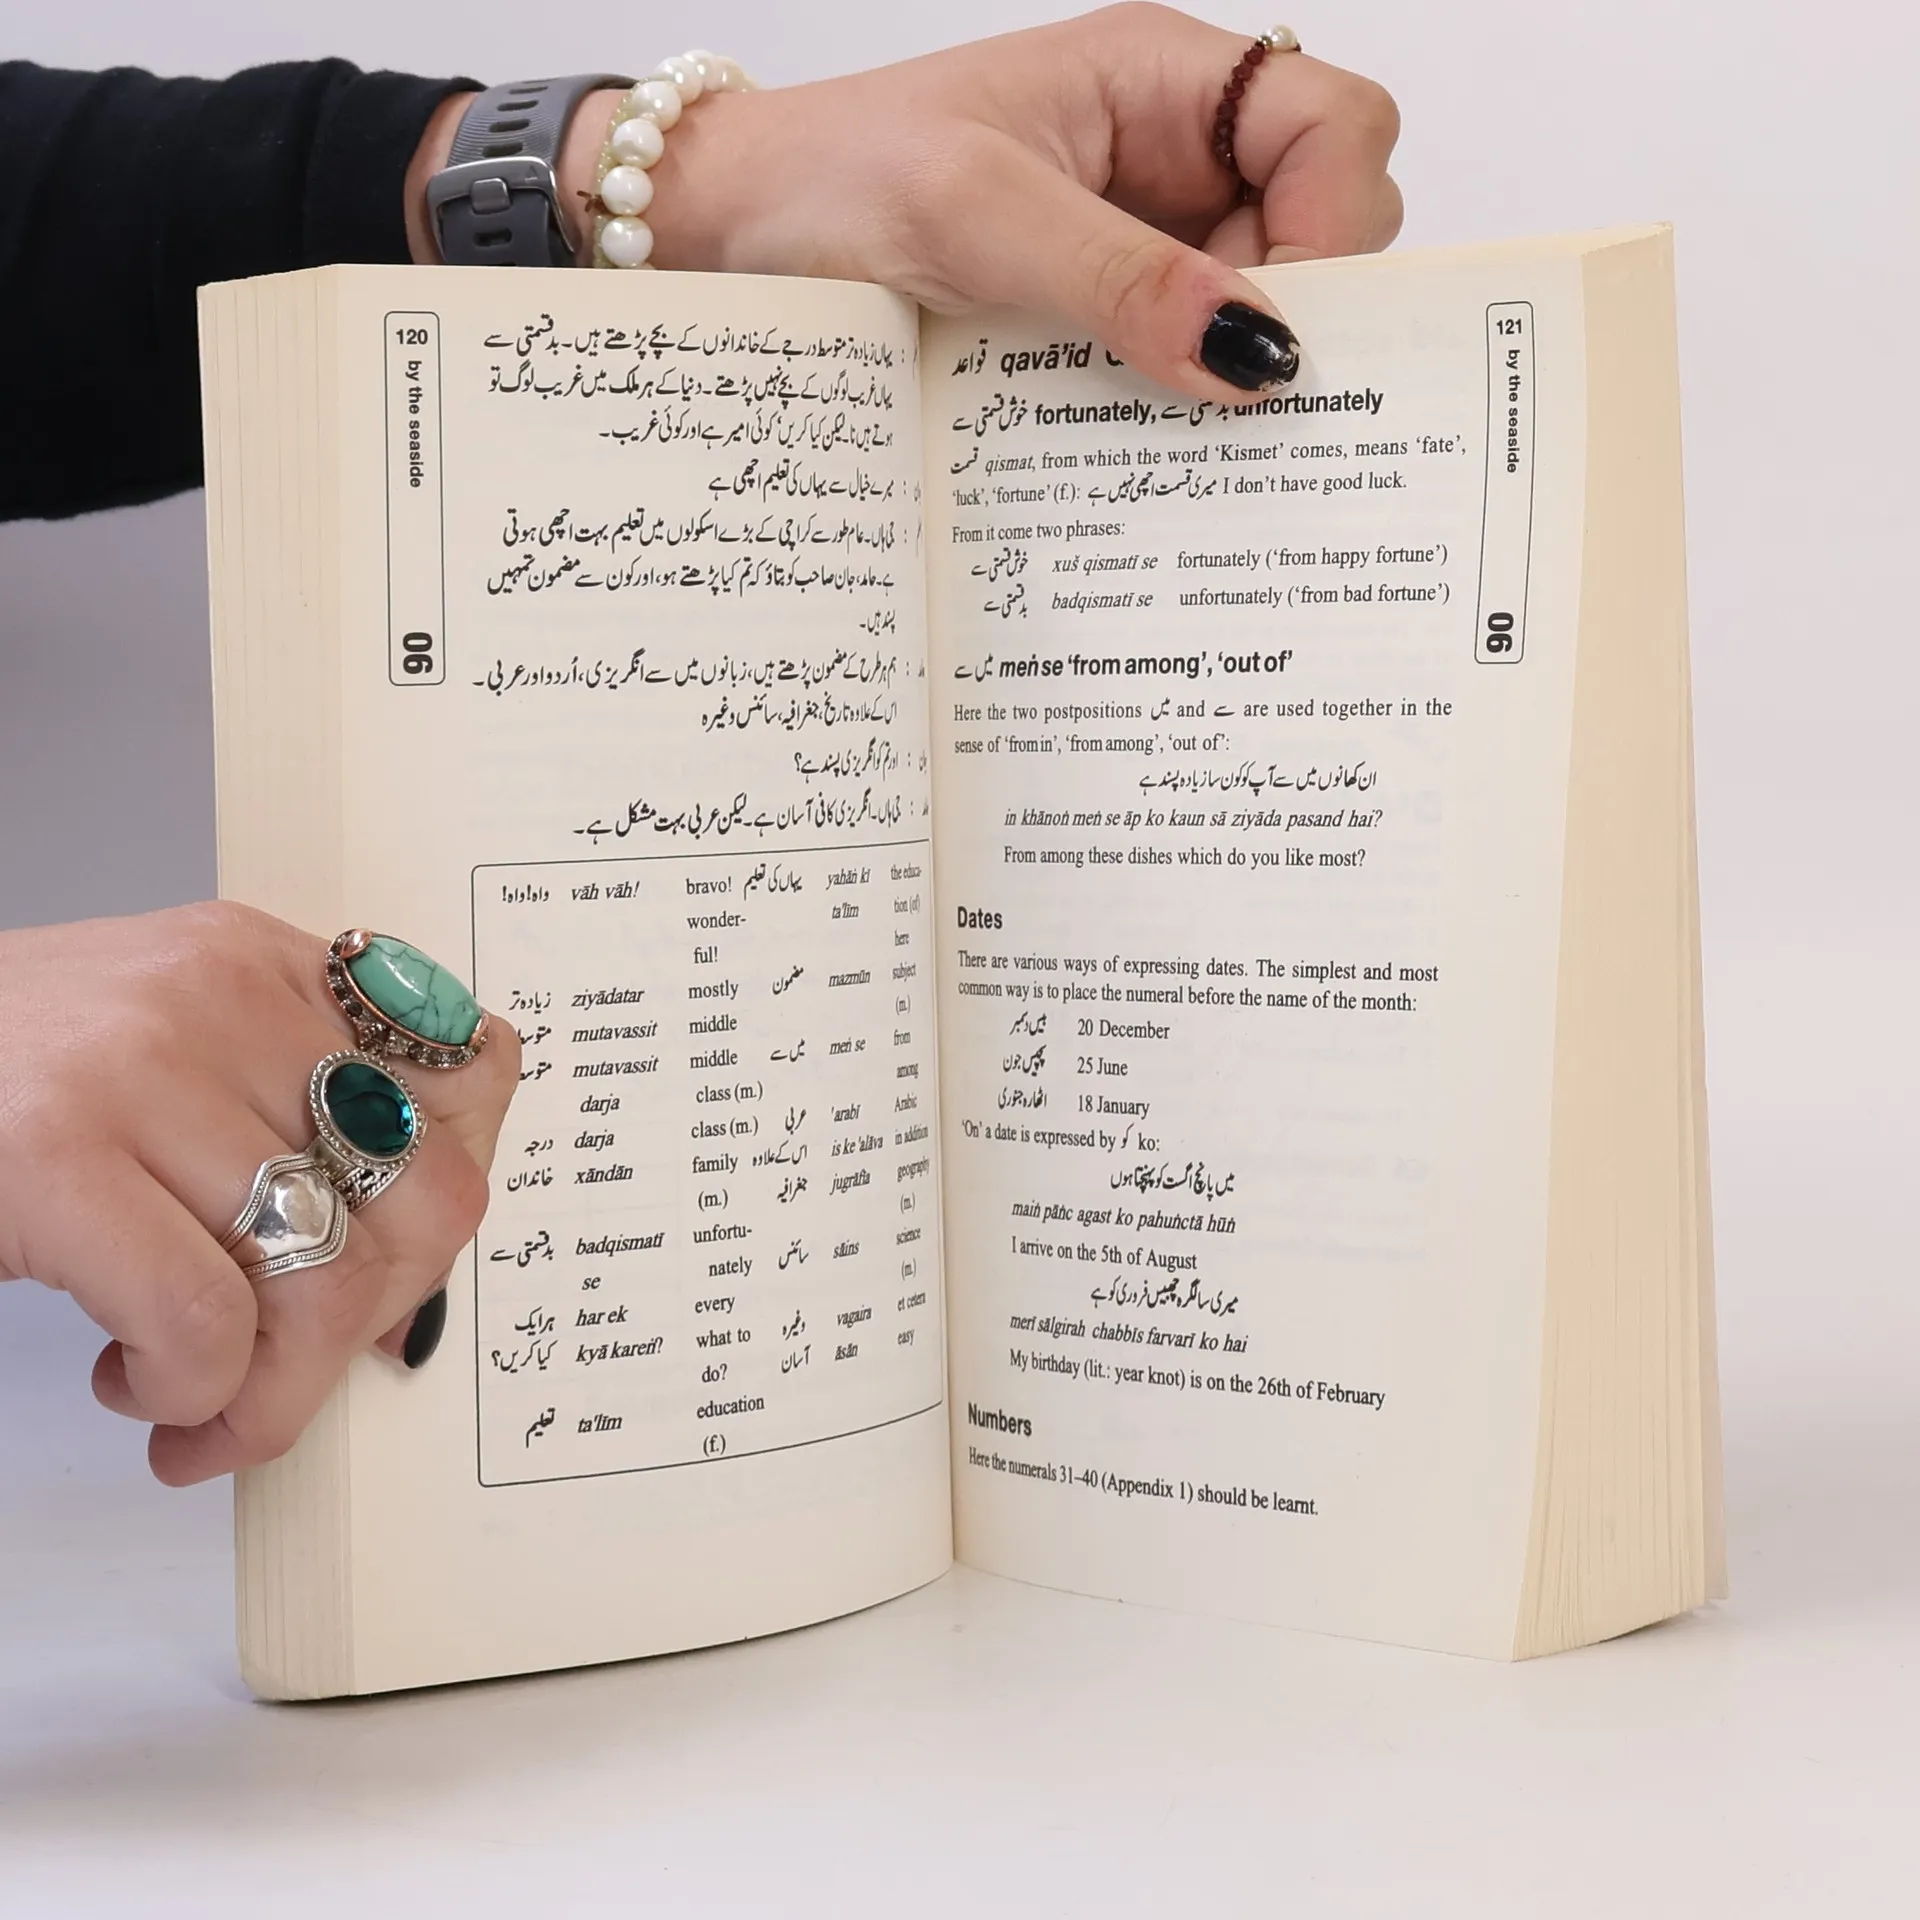 120
by the seaside
06
: یہاں زیادہ تر متوسط درجے کے خاندانوں کے بچے پڑھتے ہیں۔ بدقسمتی سے
یہاں غریب لوگوں کے بچے نہیں پڑھتے۔ دنیا کے ہر ملک میں غریب لوگ تو
ہوتے ہیں نا۔ لیکن کیا کریں، کوئی امیر ہے اور کوئی غریب۔
: میرے خیال سے یہاں کی تعلیم اچھی ہے
: جی ہاں۔ عام طور سے کراچی کے بڑے اسکولوں میں تعلیم بہت اچھی ہوتی
ہے۔ حامد، جان صاحب کو بتاؤ کہ تم کیا پڑھتے ہو، اور کون سے مضمون تمہیں
پسند ہیں۔
: ہم ہر طرح کے مضمون پڑھتے ہیں، زبانوں میں سے انگریزی، اُردو اور عربی۔
اس کے علاوہ تاریخ، جغرافیہ، سائنس وغیرہ
: اور تم کو انگریزی پسند ہے؟
: جی ہاں۔ انگریزی کافی آسان ہے۔ لیکن عربی بہت مشکل ہے۔
واہ! واہ! vāh vāh! bravo!
wonder-
ful!
زیادہ تر ziyādatar mostly
mutavassit middle
mutavassit middle
darja class (m.)
درجہ darja class (m.)
خاندان xāndān family
(m.)
بدقسمتی سے badqismatī unfortu-
se nately
ہر ایک har ek every
کیا کریں؟ kyā kareṅ? what to
do?
تعلیم ta'līm education
(f.)
یہاں کی تعلیم yahāṅ kī the educa-
ta'līm tion (of)
here
مضمون mazmūn subject
(m.)
میں سے meṅ se from
among
عربی 'arabī Arabic
اس کے علاوہ is ke 'alāva in addition
جغرافیہ jugrāfia geography
(m.)
سائنس sāins science
(m.)
وغیرہ vagaira et cetera
آسان āsān easy
121
by the seaside
06
قواعد qavā'id
خوش قسمتی سے fortunately, بدقسمتی سے unfortunately
قسمت qismat, from which the word 'Kismet' comes, means 'fate',
'luck', 'fortune' (f.): میری قسمت اچھی نہیں ہے I don't have good luck.
From it come two phrases:
خوش قسمتی سے xuš qismatī se fortunately ('from happy fortune')
بدقسمتی سے badqismatī se unfortunately ('from bad fortune')
میں سے meṅ se 'from among', 'out of'
Here the two postpositions میں and سے are used together in the
sense of 'from in', 'from among', 'out of':
ان کھانوں میں سے آپ کو کون سا زیادہ پسند ہے
in khānoṅ meṅ se āp ko kaun sā ziyāda pasand hai?
From among these dishes which do you like most?
Dates
There are various ways of expressing dates. The simplest and most
common way is to place the numeral before the name of the month:
بیس دسمبر 20 December
پچیس جون 25 June
اٹھارہ جنوری 18 January
'On' a date is expressed by کو ko:
میں پانچ اگست کو پہنچتا ہوں
maiṅ pāṅc agast ko pahuṅctā hūṅ
I arrive on the 5th of August
میری سالگرہ چھبیس فروری کو ہے
merī sālgirah chabbīs farvarī ko hai
My birthday (lit.: year knot) is on the 26th of February
Numbers
Here the numerals 31–40 (Appendix 1) should be learnt.